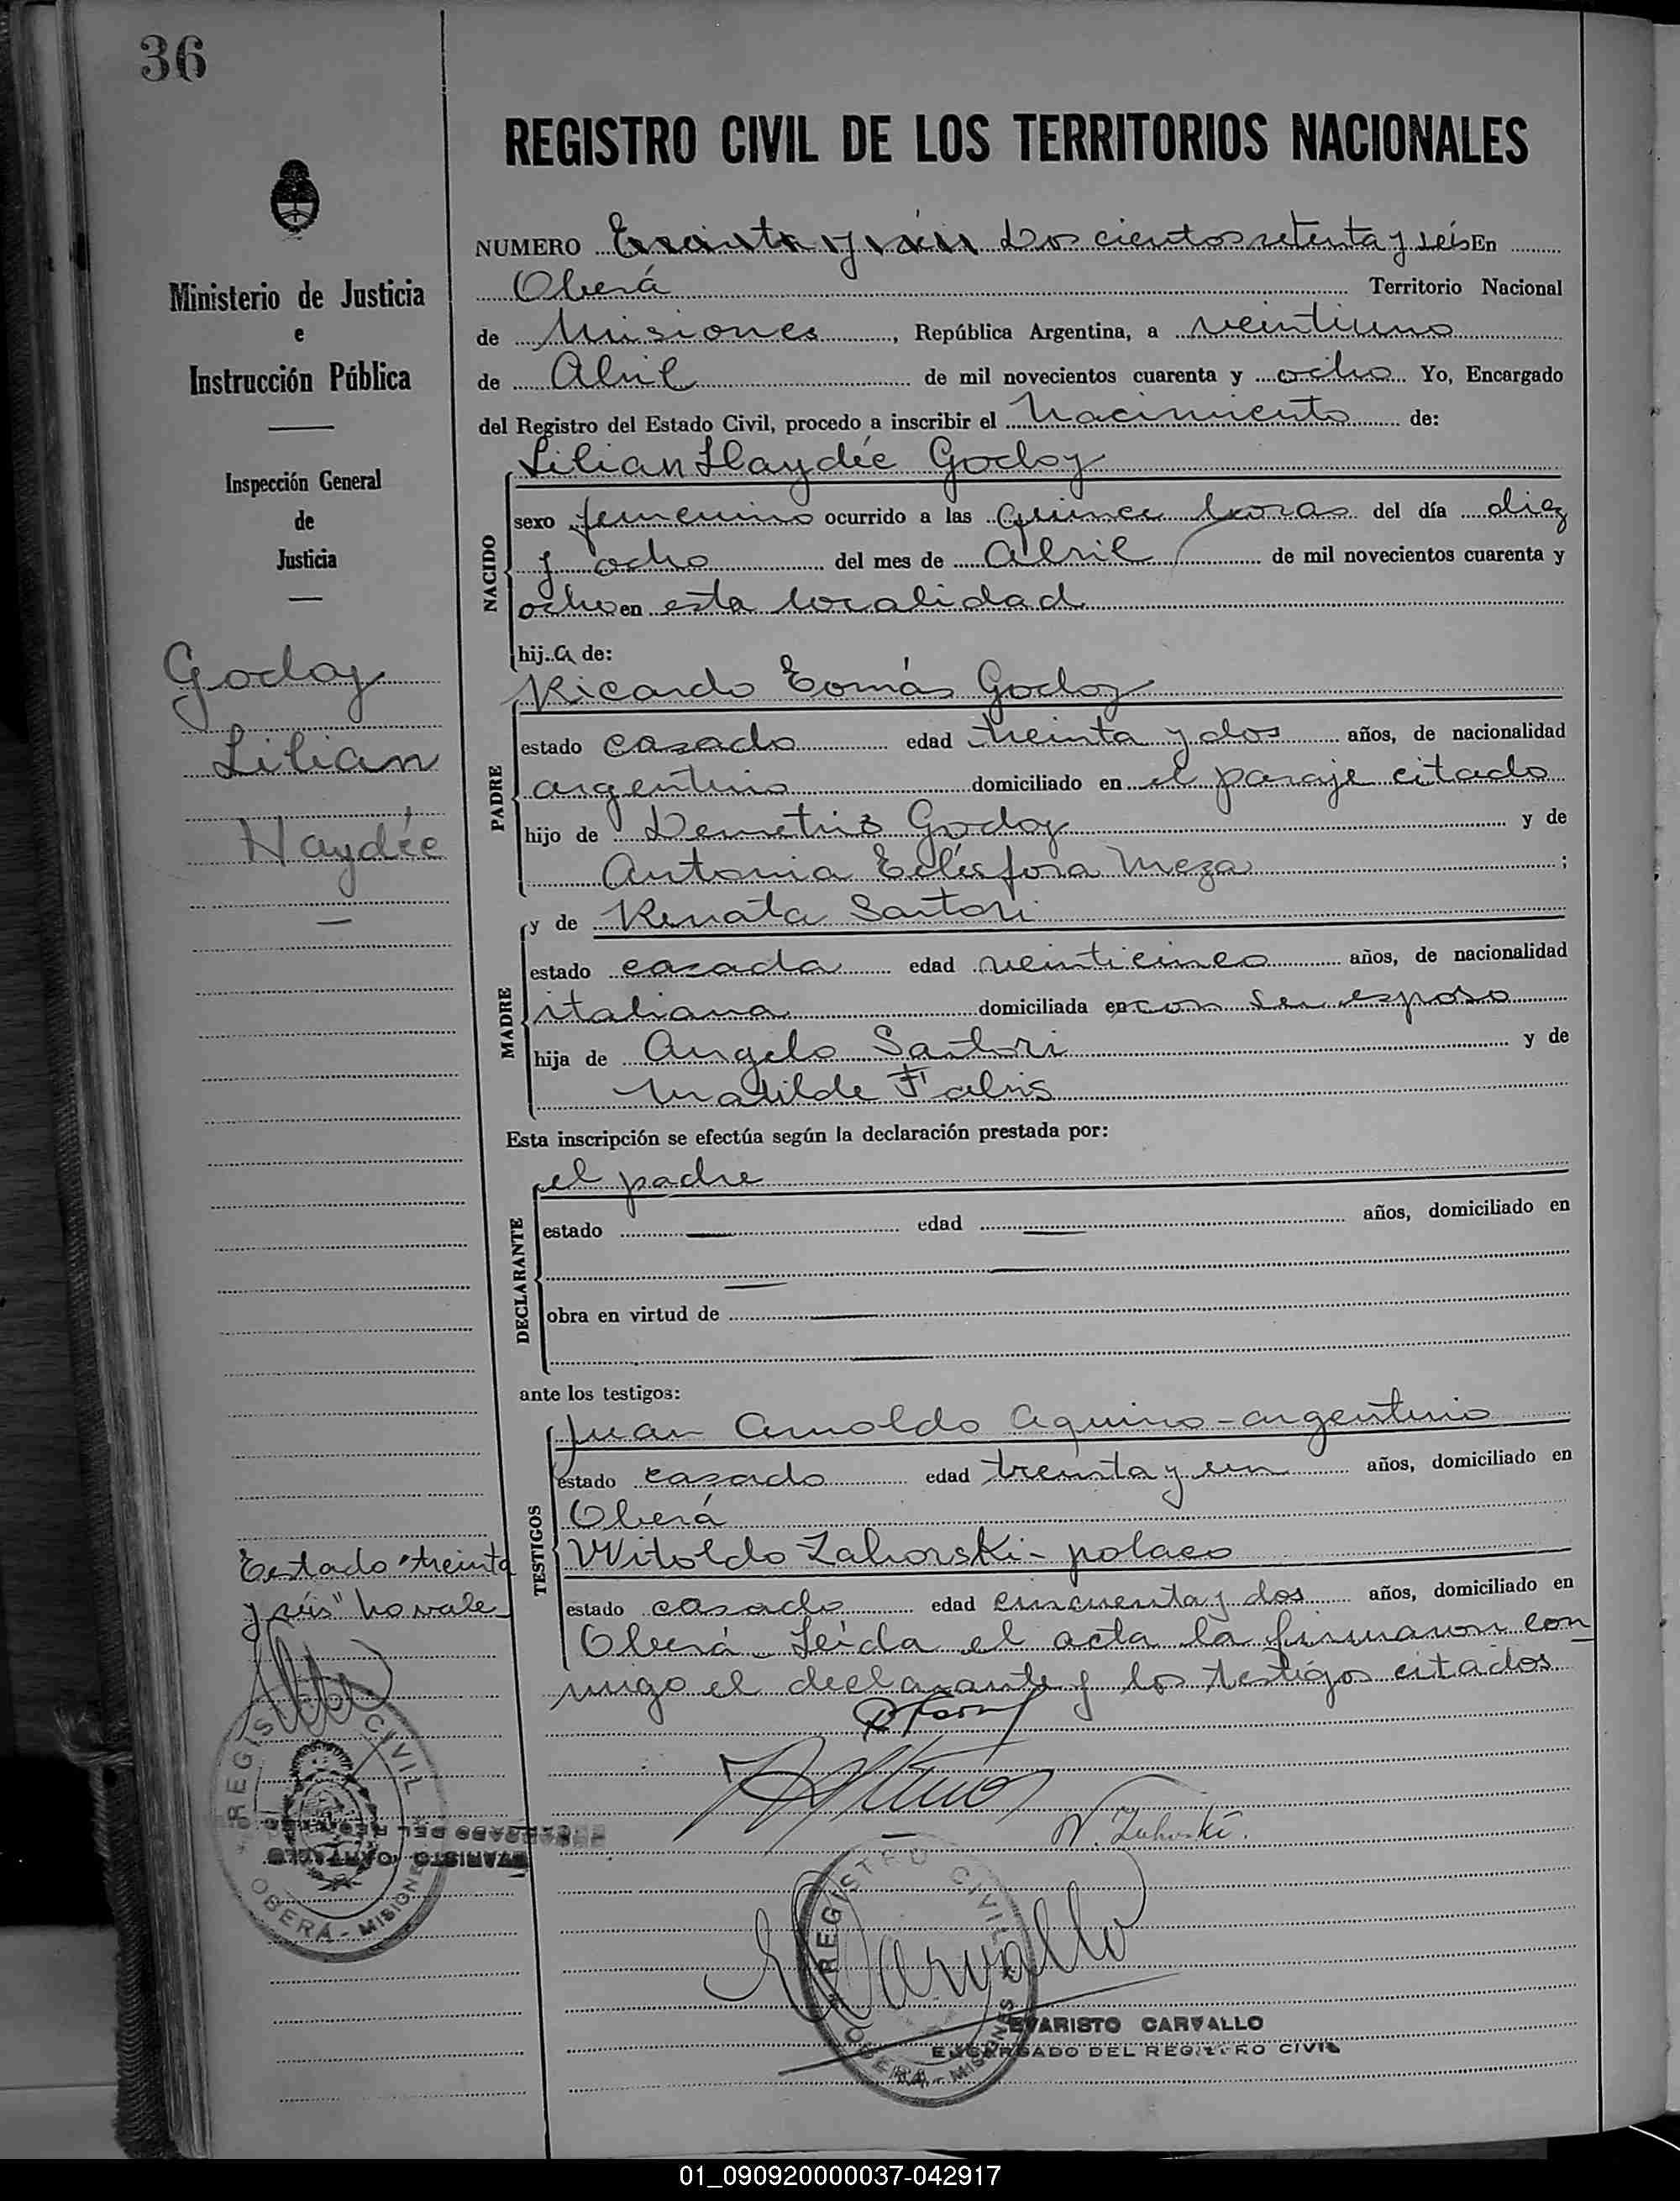 36
REGISTRO CIVIL DE LOS TERRITORIOS NACIONALES
Ministerio de Justicia
e
Instrucción Pública
Inspección General
de
Justicia
Godoy
Lilian
Haydée
NUMERO Treinta y seis Doscientos setenta y seis En
Oberá Territorio Nacional
de Misiones, República Argentina, a veintiuno
de Abril de mil novecientos cuarenta y ocho Yo, Encargado
del Registro del Estado Civil, procedo a inscribir el Nacimiento de:
NACIDO
Lilian Haydée Godoy
sexo femenino ocurrido a las quince horas del día diez
y ocho del mes de Abril de mil novecientos cuarenta y
ocho en esta localidad
hij a de:
PADRE
Ricardo Tomás Godoy
estado casado edad treinta y dos años, de nacionalidad
argentino domiciliado en el paraje citado
hijo de Demetrio Godoy y de
Antonia Telésfora Meza ;
MADRE
y de Renata Sartori
estado casada edad veinticinco años, de nacionalidad
italiana domiciliada en con su esposo
hija de Angelo Sartori y de
Matilde Fabris
Esta inscripción se efectúa según la declaración prestada por:
DECLARANTE
el padre
estado edad años, domiciliado en
obra en virtud de
ante los testigos:
TESTIGOS
Juan Arnoldo Aquino - argentino
estado casado edad treinta y un años, domiciliado en
Oberá
Witoldo Zahorski - polaco
estado casado edad cincuenta y dos años, domiciliado en
Oberá - Leída el acta la firmaron con
migo el declarante y los testigos citados
Testado "treinta
y seis" no vale
REGISTRO CIVIL
OBERÁ - MISIONES
EVARISTO CARVALLO
ENCARGADO DEL REGISTRO CIVIL
W. Zahorski.
REGISTRO CIVIL
OBERÁ - MISIONES
ECarvallo
EVARISTO CARVALLO
ENCARGADO DEL REGISTRO CIVIL
01_090920000037-042917